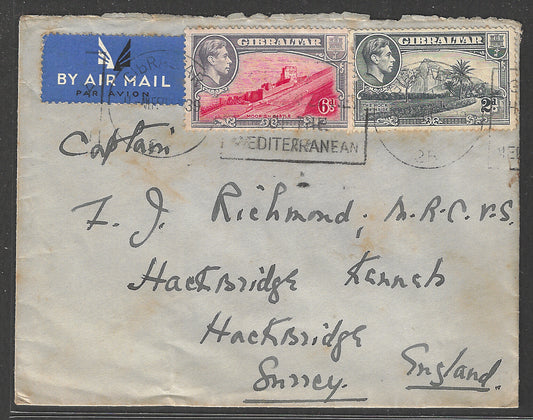 BY AIR MAIL
PAR AVION
GIBRALTAR
6d
MOORISH CASTLE
GIBRALTAR
2d
OF THE
MEDITERRANEAN
Captain
F. J. Richmond, M.R.C.V.S.
Hackbridge Kennels
Hackbridge
Surrey.
England.